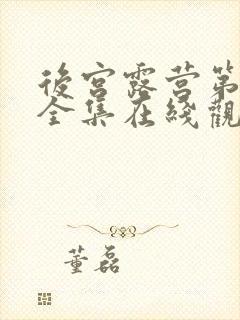 後宮露营第
全集在綫觀
董磊